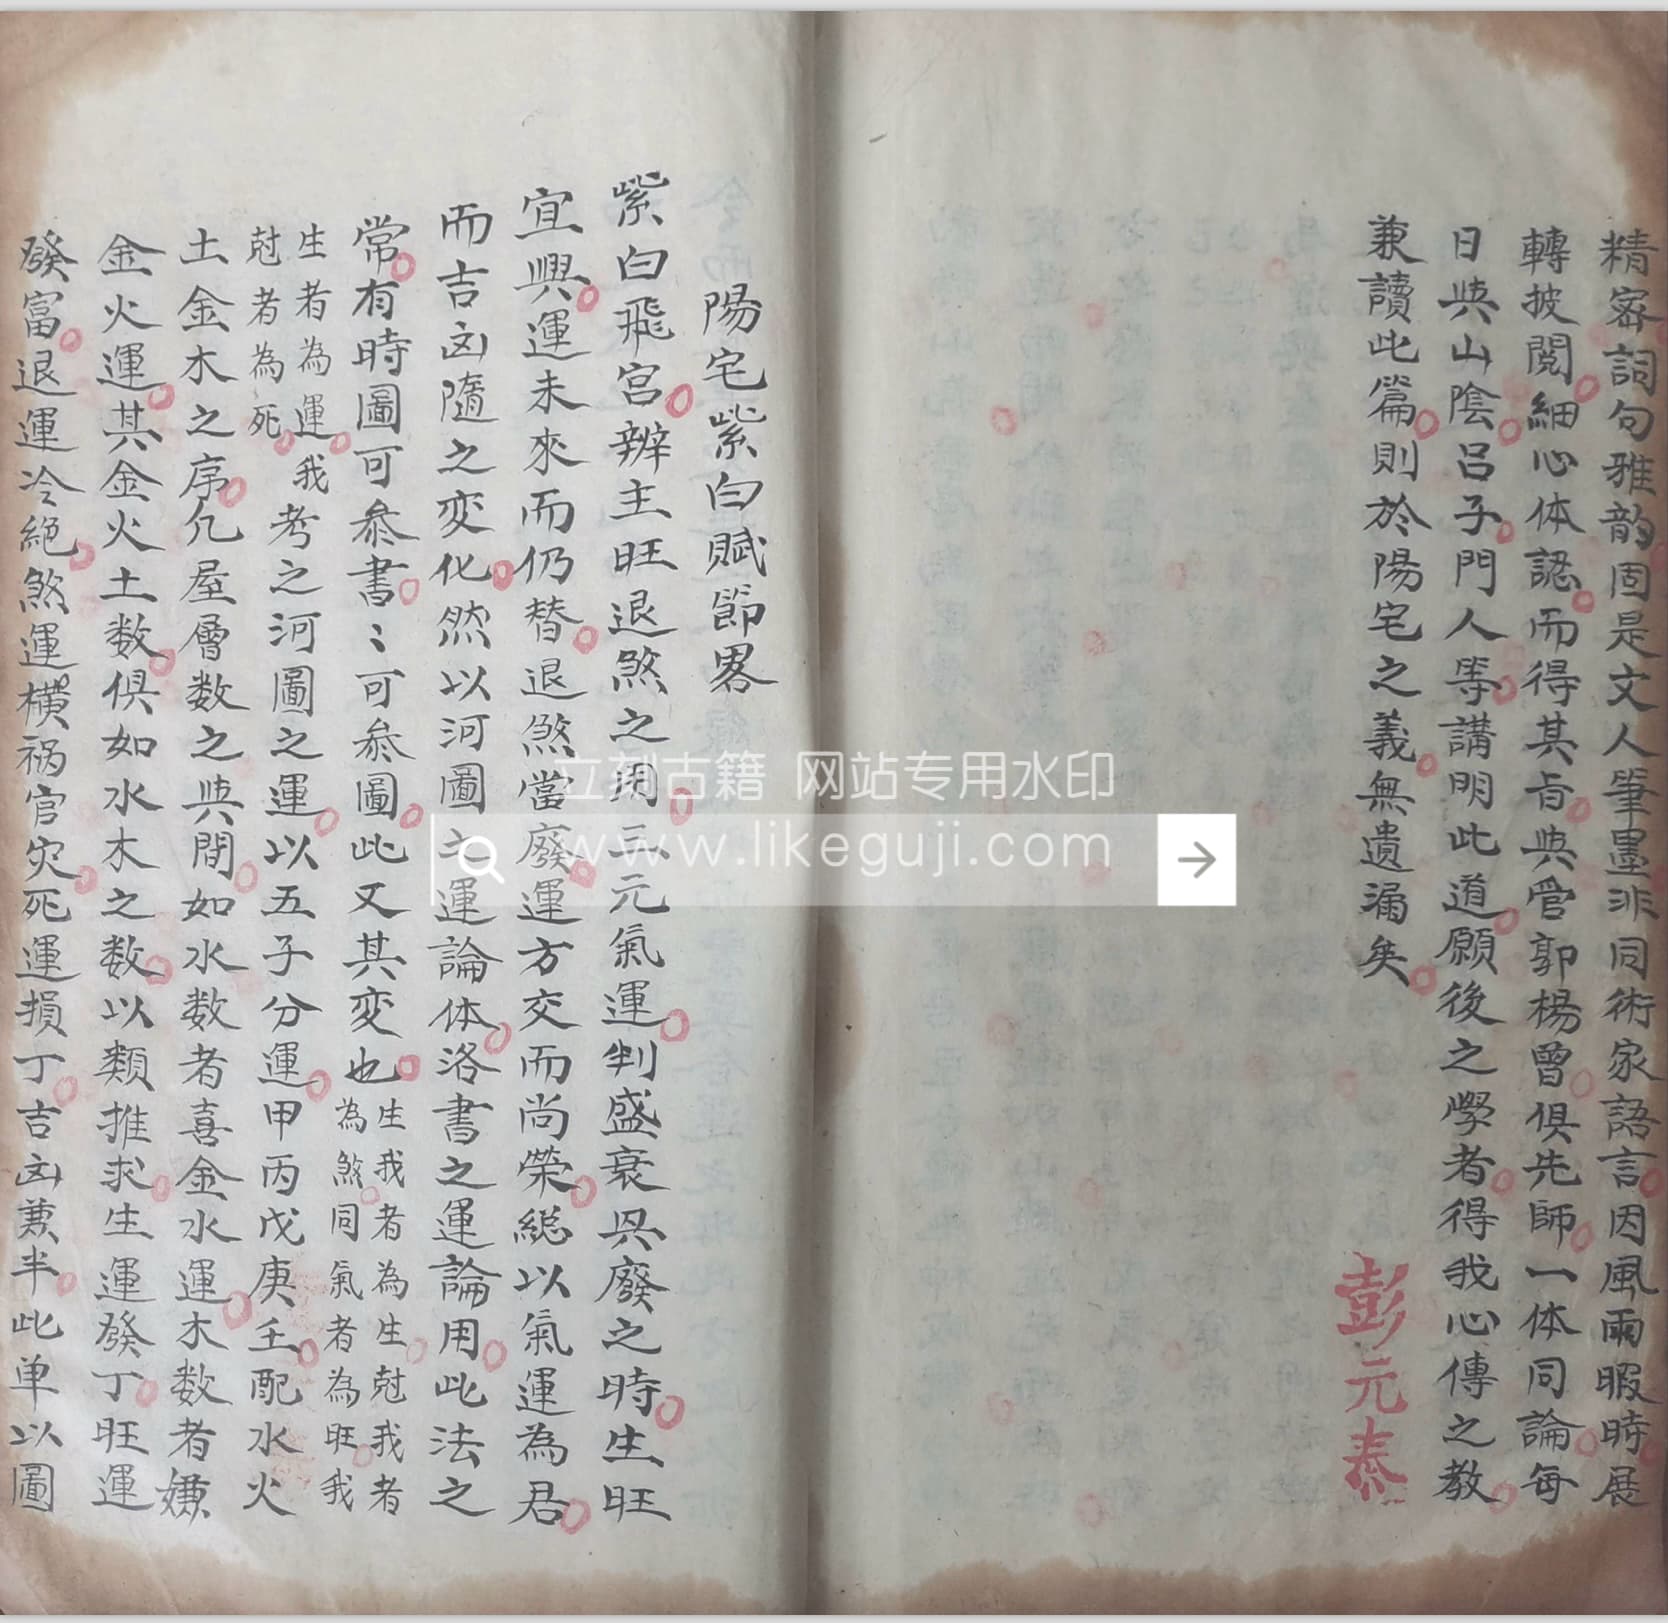 精密詞句雅韵固是文人筆墨非同術家語言因風雨暇時展
轉披閱細心体認而得其旨與管郭楊曾俱先師一体同論每
日與山陰呂子門人等講明此道願後之學者得我心傳之教
兼讀此篇則於陽宅之義無遺漏矣
彭元泰
陽宅紫白賦節畧
紫白飛宮辨主旺退煞之用三元氣運判盛衰興廢之時生旺
宜興運未來而仍替退煞當廢運方交而尚榮総以氣運為君
而吉凶隨之変化然以河圖之運論体洛書之運論用此法之
常有時圖可叅書〻可叅圖此又其変也
生我者為生尅我者
為煞同氣者為旺我
生者為運我
尅者為死
考之河圖之運以五子分運甲丙戊庚壬配水火
土金木之序凢屋層数之與間如水数者喜金水運木数者嫌
金火運其金火土数俱如水木之数以類推求生運發丁旺運
發富退運冷絕煞運橫祸官灾死運損丁吉凶兼半此单以圖
立刻古籍 网站专用水印
www.likeguji.com